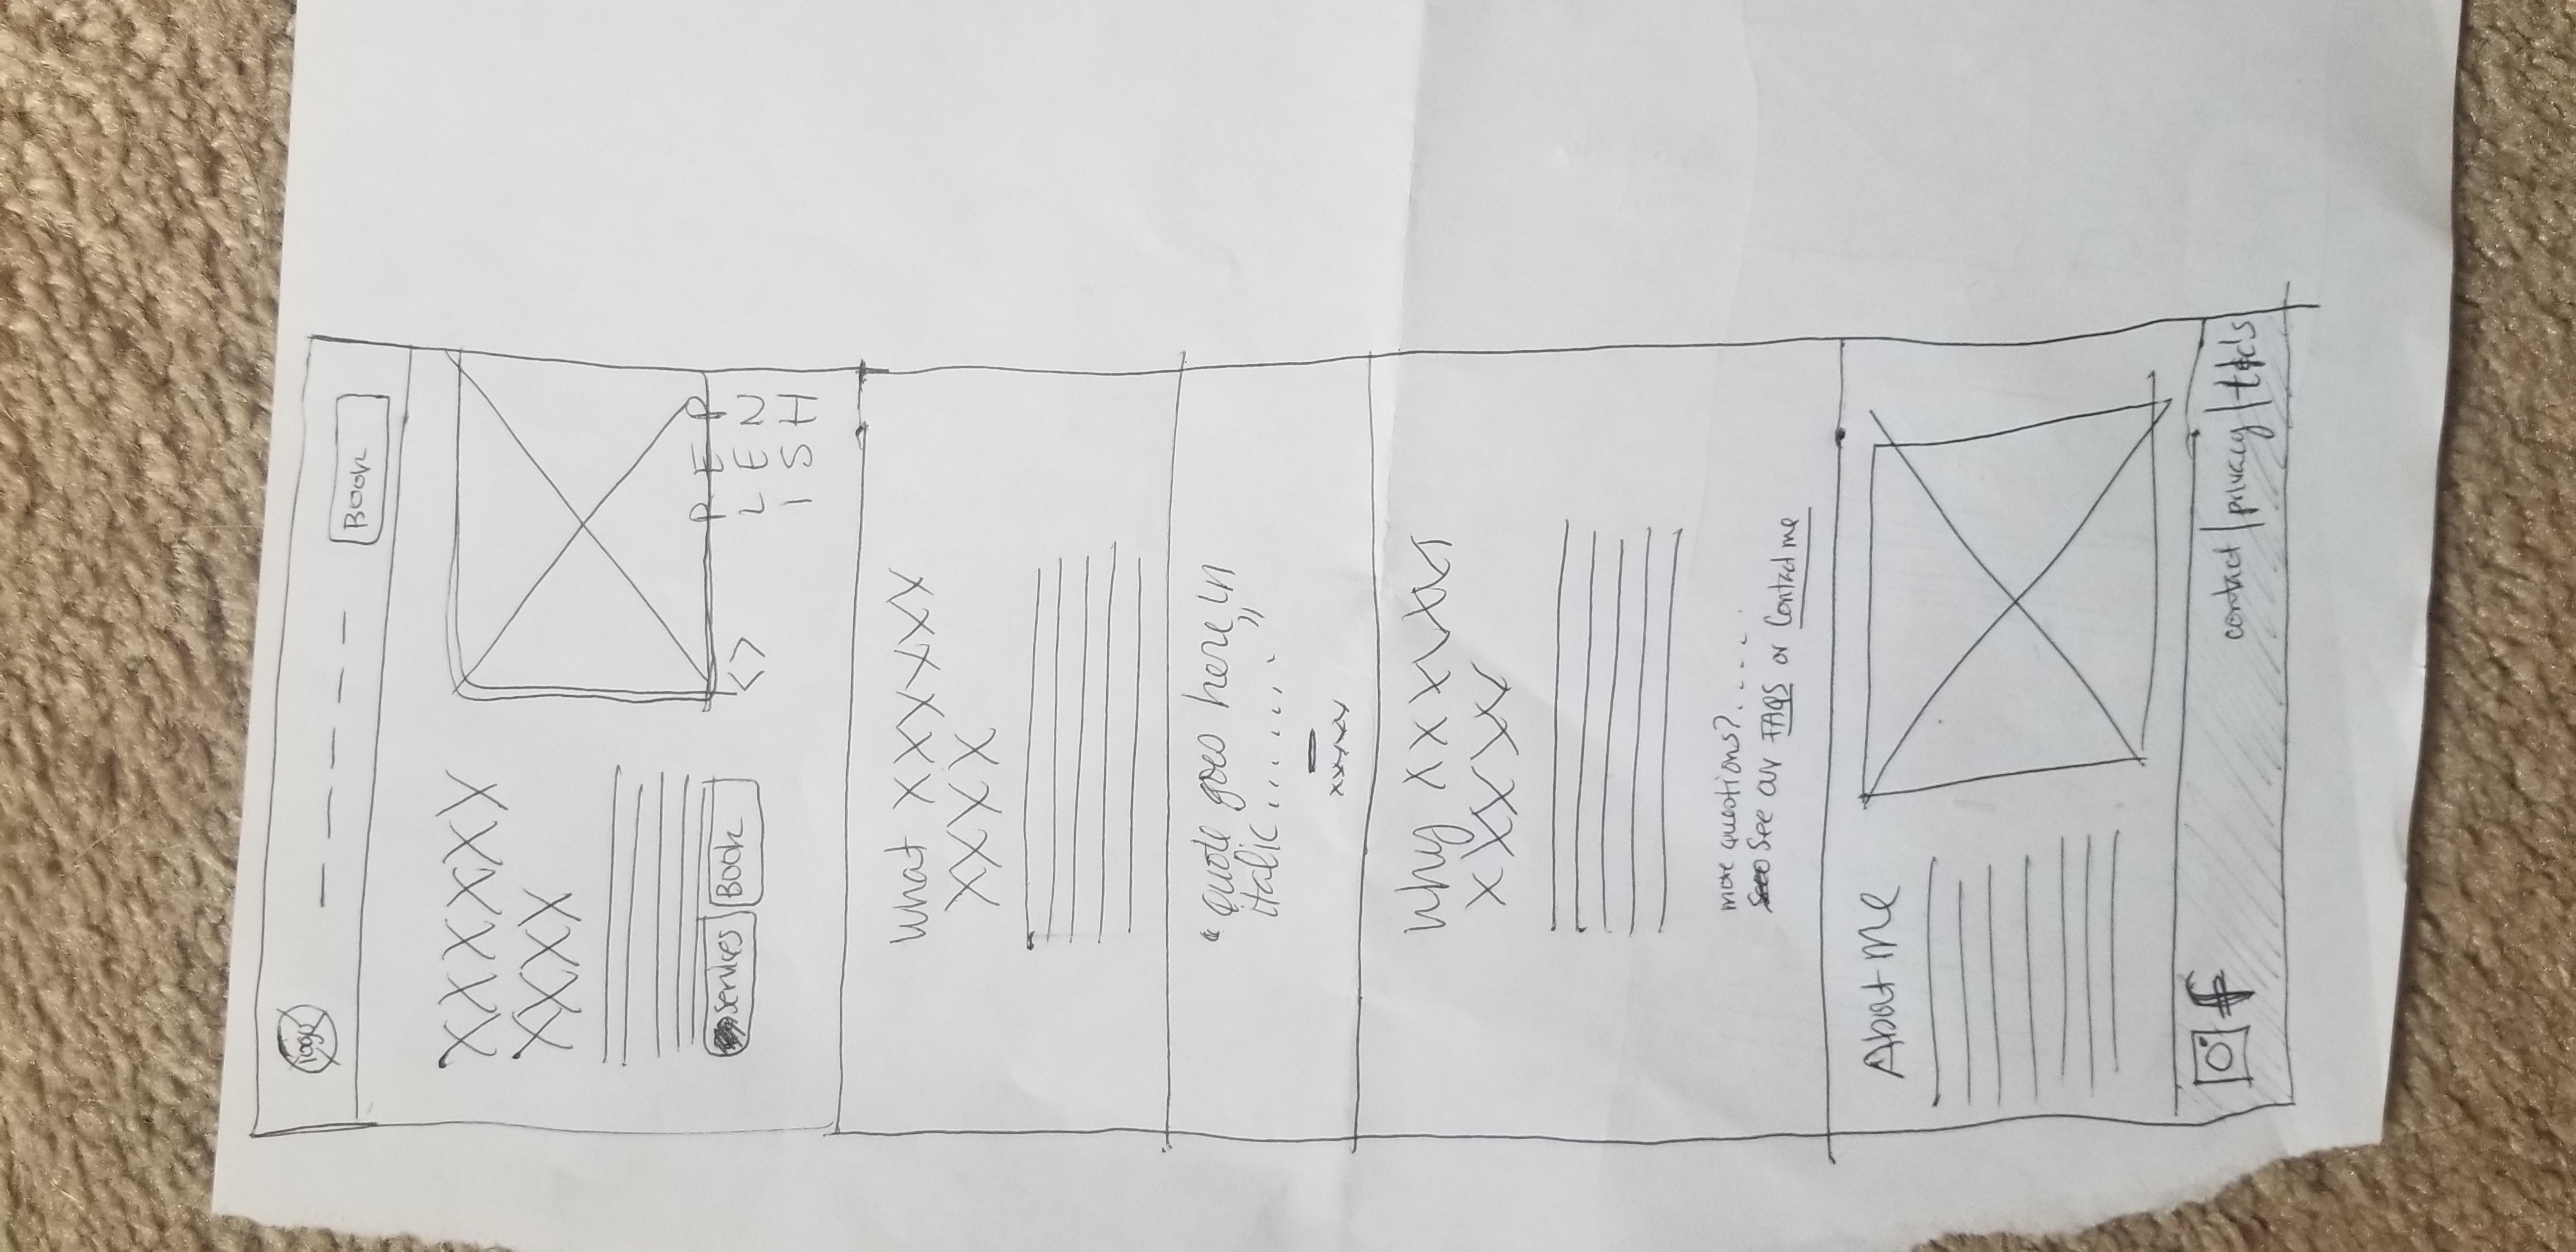 logo
Book
XXXXXX
XXXX
services
Book
< >
R E P
L E N
I S H
What XXXXXX
XXXX
"quote goes here in
italic........"
xxxxx
Why XXXXXXX
XXXXXX
more questions?.....
See our FAQS or Contact me
About Me
contact | privacy | t&c's